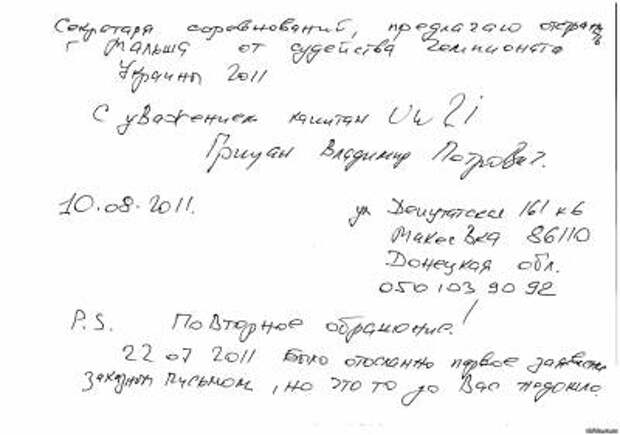 Секретаря соревнований, предлагаю отстранить
г Мальша от судейства Чемпионата
Украины 2011
С уважением капитан UW2I
Грицан Владимир Петрович.
10.08.2011.
ул Депутатская 161 кв
Макеевка 86110
Донецкая обл.
050 103 90 92
P.S. Повторное обращение!
22 07 2011 Было отосланно первое заявление
заказным письмом, но что то до Вас недошло.